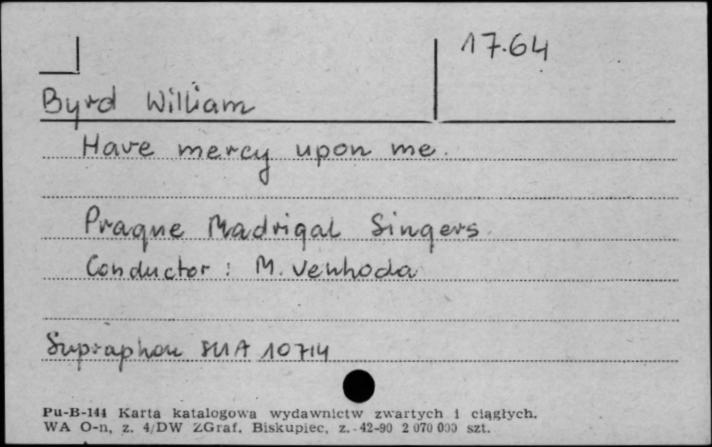 17.64
Byrd William
Have mercy upon me.
Prague Madrigal Singers
Conductor: M. Venhoda
Supraphon SUA 10714
Pu-B-144 Karta katalogowa wydawnictw zwartych i ciągłych.
WA O-n, z. 4/DW ZGraf. Biskupiec, z. 42-90 2 070 000 szt.